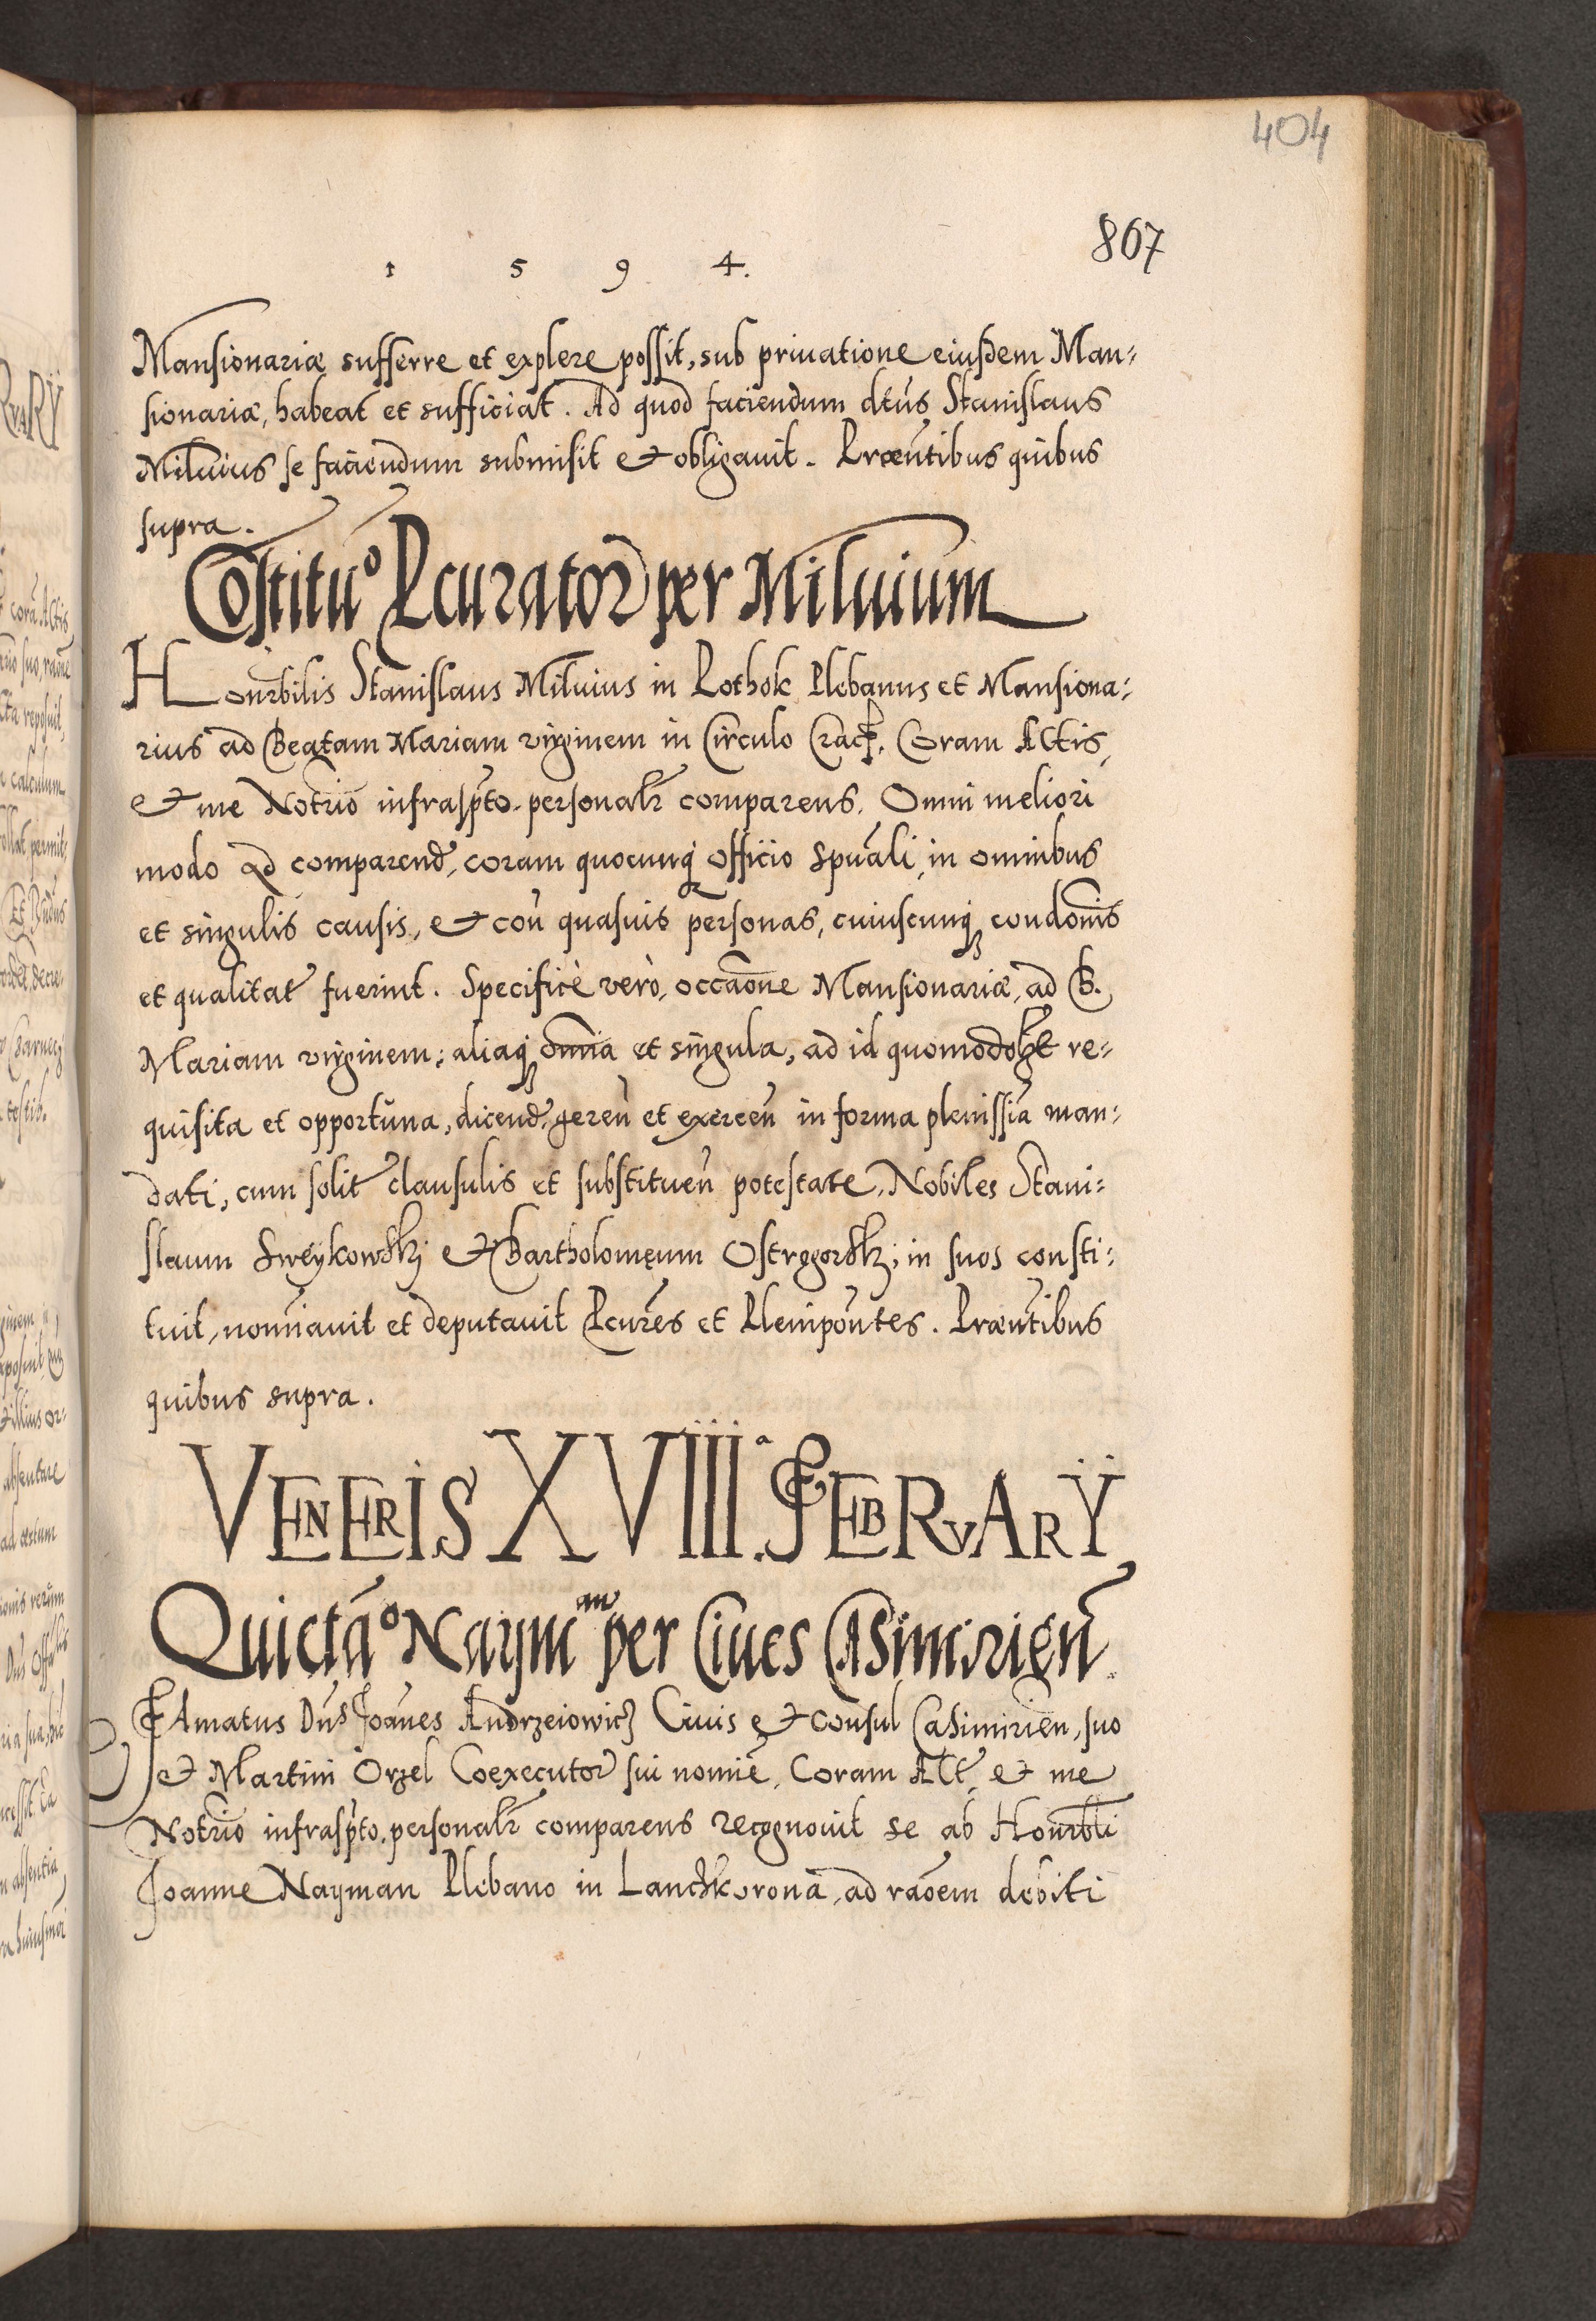 404
867
1 5 9 4.
Mansionariæ sufferre et explere possit, sub priuatione eiusdem Man-
sionariæ, habeat et sufficiat. Ad quod faciendum dtus Stanislaus
Miluius se faciendum submisit et obligauit. Præntibus quibus
supra.
Costituo Pcurator per Miluium
Honrbilis Stanislaus Miluius in Pothok Plebanus et Mansiona-
rius ad Beatam Mariam virginem in Circulo Crac. Coram Actis,
et me Notrio infraspto personalr comparens. Omni meliori
modo ad comparend, coram quocunq officio spuali, in omnibus
et singulis causis, et con quasuis personas, cuiuscunq condonis
et qualitat fuerint. Specificè verò, occaone Mansionariæ, ad B.
Mariam virginem; aliaq omnia et singula, ad id quomodolzt re-
quisita et opportuna, dicend, geren et exercen in forma plenissia man-
dati, cum solit clausulis et substituen potestate, Nobiles Stani-
slaum Sweykowskj et Bartholomęum Ostrogorskj in suos consti-
tuit, nominauit et deputauit Pcures et Plenipontes. Præntibus
quibus supra.
VENERIS XVIII.a FEBRVARY
Quictao Nayman per Ciues Casimirien
Famatus Dns Joanes Andrzeiowicz Ciuis et Consul Casimirien, suo
et Martini Orzel Coexecutor sui nomie, Coram Act et me
Notrio infraspto personalr comparens recognouit se ab Honrbli
Joanne Nayman Plebano in Lanczkorona, ad raoem debiti